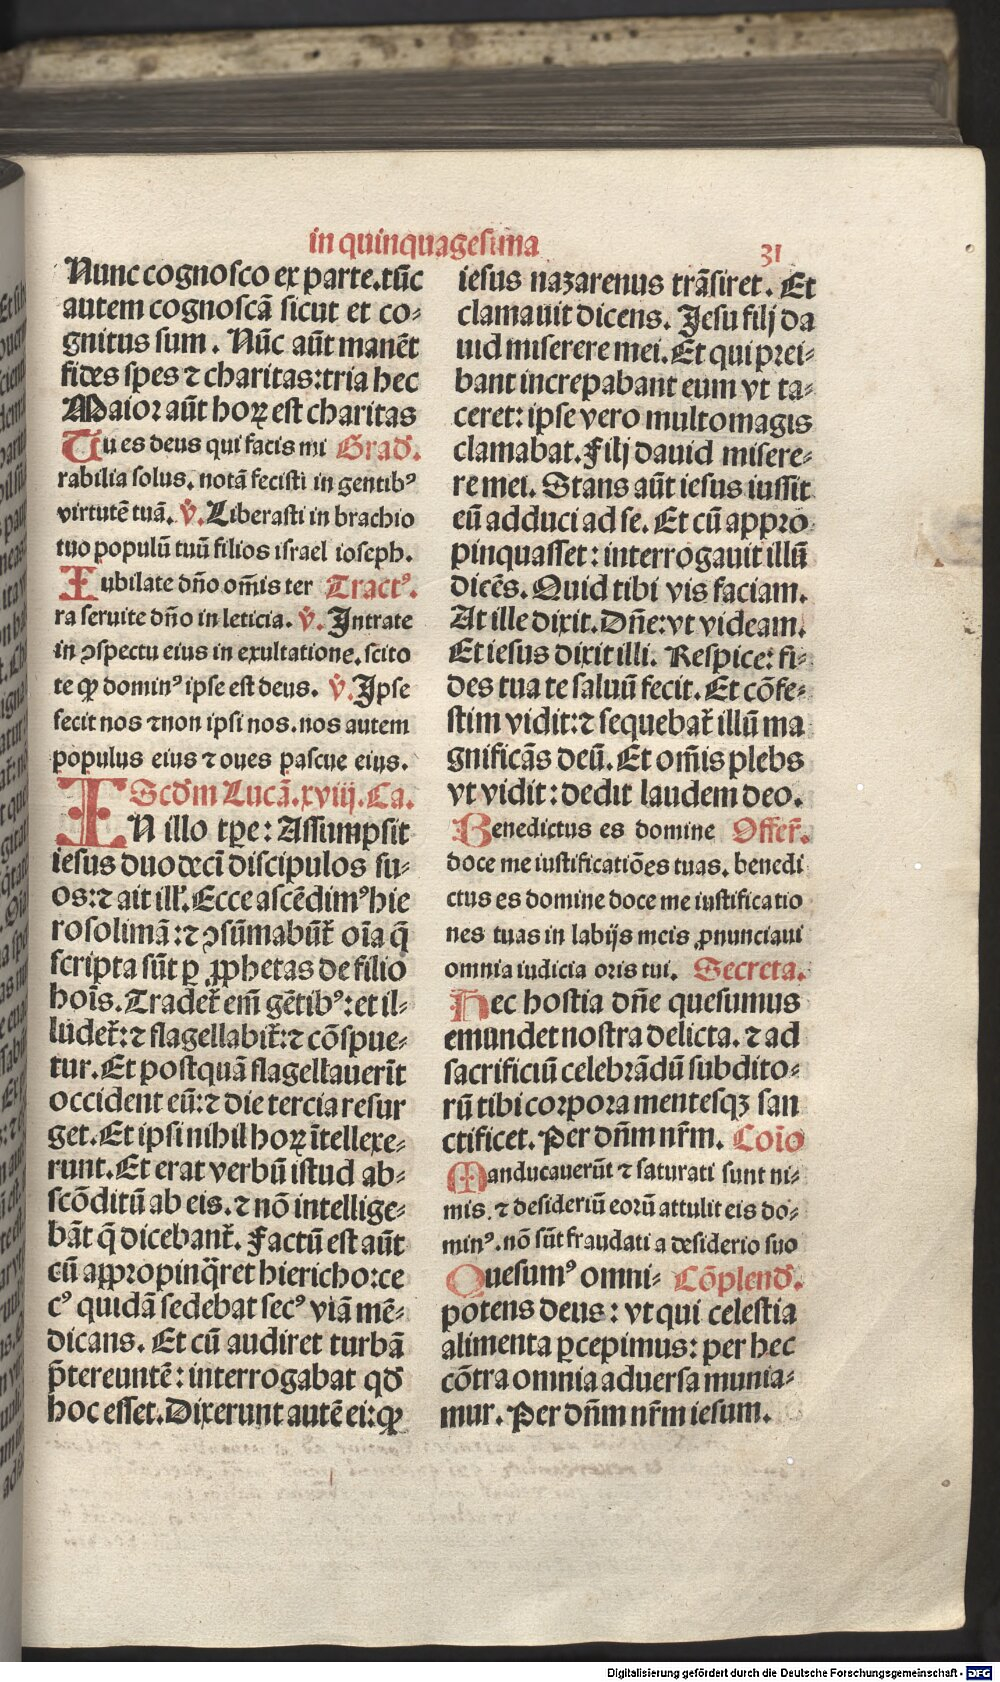 in quinquagesima
31
Nunc cognosco ex parte.tūc
autem cognoscā sicut et co⸗
gnitus sum. Nūc aūt manēt
fides spes ⁊ charitas:tria hec
Maior aūt hoꝝ est charitas
Tu es deus qui facis mi Grad̄.
rabilia solus. notā fecisti in gentibꝰ
virtutē tuā. v̄. Liberasti in brachio
tuo populū tuū filios israel ioseph.
Iubilate dn̄o om̄is ter Tractꝰ.
ra seruite dn̄o in leticia. v̄. Intrate
in ↄspectu eius in exultatione.scito
te ꝙ dominꝰ ipse est deus. v̄. Ipse
fecit nos ⁊non ipsi nos.nos autem
populus eius ⁊ oues pascue eius.
Scd̄m Lucā.xviij.Ca.
IN illo tꝑe: Assumpsit
iesus duodecī discipulos su⸗
os:⁊ ait ill'.Ecce ascēdimꝰhie
rosolimā:⁊ ↄsūmabūt᷑ oīa q̄
scripta sūt ꝑ ꝓphetas de filio
hoīs.Tradet᷑ em̄ gētibꝰ:et il⸗
ludet᷑:⁊ flagellabit᷑:⁊ cōspue⸗
tur.Et postquā flagellauerīt
occident eū:⁊ die tercia resur
get.Et ipsi nihil hoꝝ ītellexe⸗
runt.Et erat verbū istud ab⸗
scōditū ab eis.⁊ nō intellige⸗
bāt q̄ dicebant᷑. Factū est aūt
cū appropinq̄ret hiericho:ce
cꝰ quidā sedebat secꝰ viā mē⸗
dicans. Et cū audiret turbā
p̄tereuntē: interrogabat qd̄
hoc esset.Dixerunt autē ei:ꝙ
iesus nazarenus trāsiret. Et
clamauit dicens. Jesu filj da
uid miserere mei.Et qui prei⸗
bant increpabant eum vt ta⸗
ceret: ipse vero multomagis
clamabat.Filj dauid misere⸗
re mei. Stans aūt iesus iussit
eū adduci ad se. Et cū appro
pinquasset: interrogauit illū
dicēs. Quid tibi vis faciam.
At ille dixit.Dn̄e:vt videam.
Et iesus dixit illi. Respice: fi⸗
des tua te saluū fecit.Et cōfe⸗
stim vidit:⁊ sequebat᷑ illū ma
gnificās deū.Et om̄is plebs
vt vidit: dedit laudem deo.
Benedictus es domine Offer᷑.
doce me iustificatiōes tuas. benedi
ctus es domine doce me iustificatio
nes tuas in labijs meis ꝓnunciaui
omnia iudicia oris tui. Secreta.
Hec hostia dn̄e quesumus
emundet nostra delicta.⁊ ad
sacrificiū celebrādū subdito⸗
rū tibi corpora mentesqꝫ san
ctificet. Per dn̄m nr̄m. Coīo
Manducauerūt ⁊ saturati sunt ni⸗
mis.⁊ desideriū eorū attulit eis do⸗
minꝰ.nō sūt fraudati a desiderio suo
Quesumꝰ omni⸗ Cōplend̄.
potens deus: vt qui celestia
alimenta ꝑcepimus: per hec
cōtra omnia aduersa munia⸗
mur. Per dn̄m nr̄m iesum.
Digitalisierung gefördert durch die Deutsche Forschungsgemeinschaft - DFG